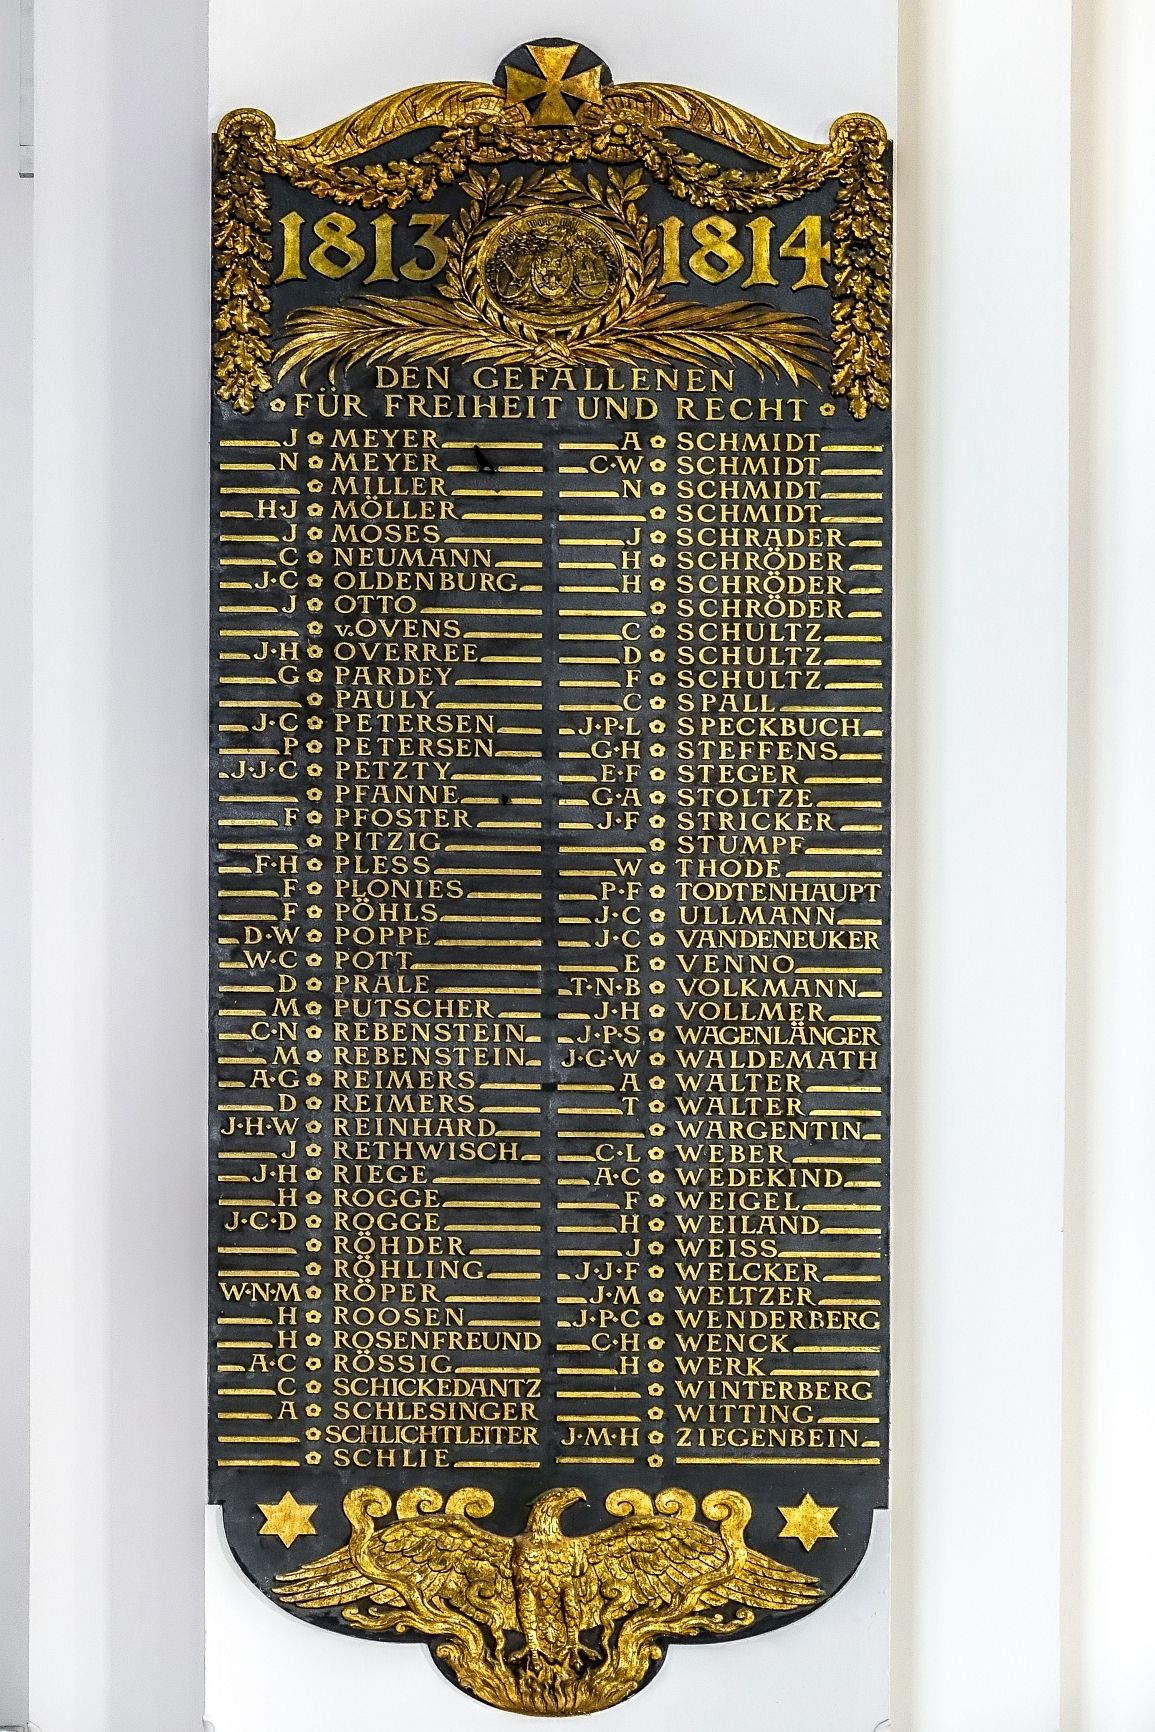 1813
1814
DEN GEFALLENEN
FÜR FREIHEIT UND RECHT
J MEYER
N MEYER
MILLER
H·J MÖLLER
J MOSES
C NEUMANN
J·C OLDENBURG
J OTTO
v. OVENS
J·H OVERREE
G PARDEY
PAULY
J·C PETERSEN
P PETERSEN
J·J·C PETZTY
PFANNE
F PFOSTER
PITZIG
F·H PLESS
F PLONIES
F PÖHLS
D·W POPPE
W·C POTT
D PRALE
M PUTSCHER
C·N REBENSTEIN
M REBENSTEIN
A·G REIMERS
D REIMERS
J·H·W REINHARD
J RETHWISCH
J·H RIEGE
H ROGGE
J·C·D ROGGE
RÖHDER
RÖHLING
W·N·M RÖPER
H ROOSEN
H ROSENFREUND
A·C RÖSSIG
C SCHICKEDANTZ
A SCHLESINGER
SCHLICHTLEITER
SCHLIE
A SCHMIDT
C·W SCHMIDT
N SCHMIDT
SCHMIDT
J SCHRADER
H SCHRÖDER
H SCHRÖDER
SCHRÖDER
C SCHULTZ
D SCHULTZ
F SCHULTZ
C SPALL
J·P·L SPECKBUCH
G·H STEFFENS
E·F STEGER
G·A STOLTZE
J·F STRICKER
STUMPF
W THODE
P·F TODTENHAUPT
J·C ULLMANN
J·C VANDENEUKER
E VENNO
T·N·B VOLKMANN
J·H VOLLMER
J·P·S WAGENLÄNGER
J·G·W WALDEMATH
A WALTER
T WALTER
WARGENTIN
C·L WEBER
A·C WEDEKIND
F WEIGEL
H WEILAND
J WEISS
J·J·F WELCKER
J·M WELTZER
J·P·C WENDERBERG
C·H WENCK
H WERK
WINTERBERG
WITTING
J·M·H ZIEGENBEIN